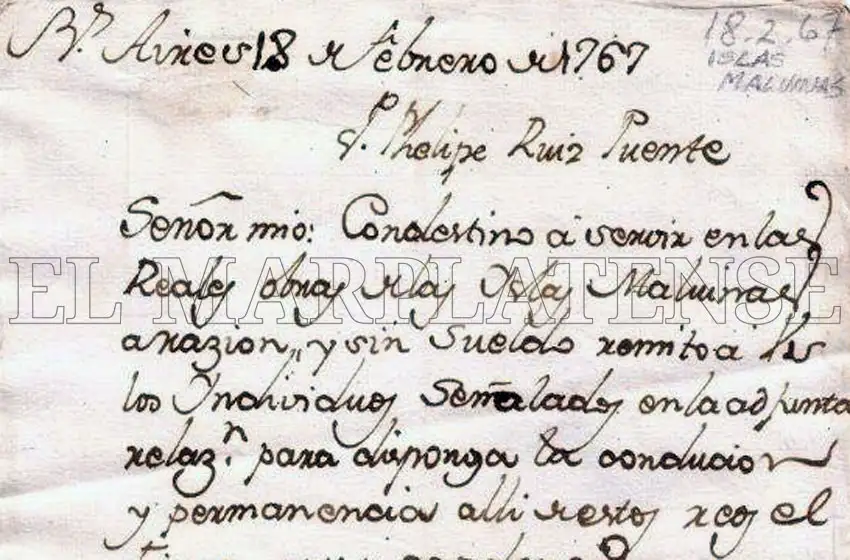 Bs. Aires 18 de Febrero de 1767
18.2.67
ISLAS
MALVINAS
Phelipe Ruiz Puente
Señor mio: Condestino á servir enlas
Reales obras delas Islas Malvinas
arazion, y sin sueldo remito á
los Individuos Señalados enlaadjunta
relazn. para disponga la conducion
y permanencia alli destos reos el
EL MARPLATENSE